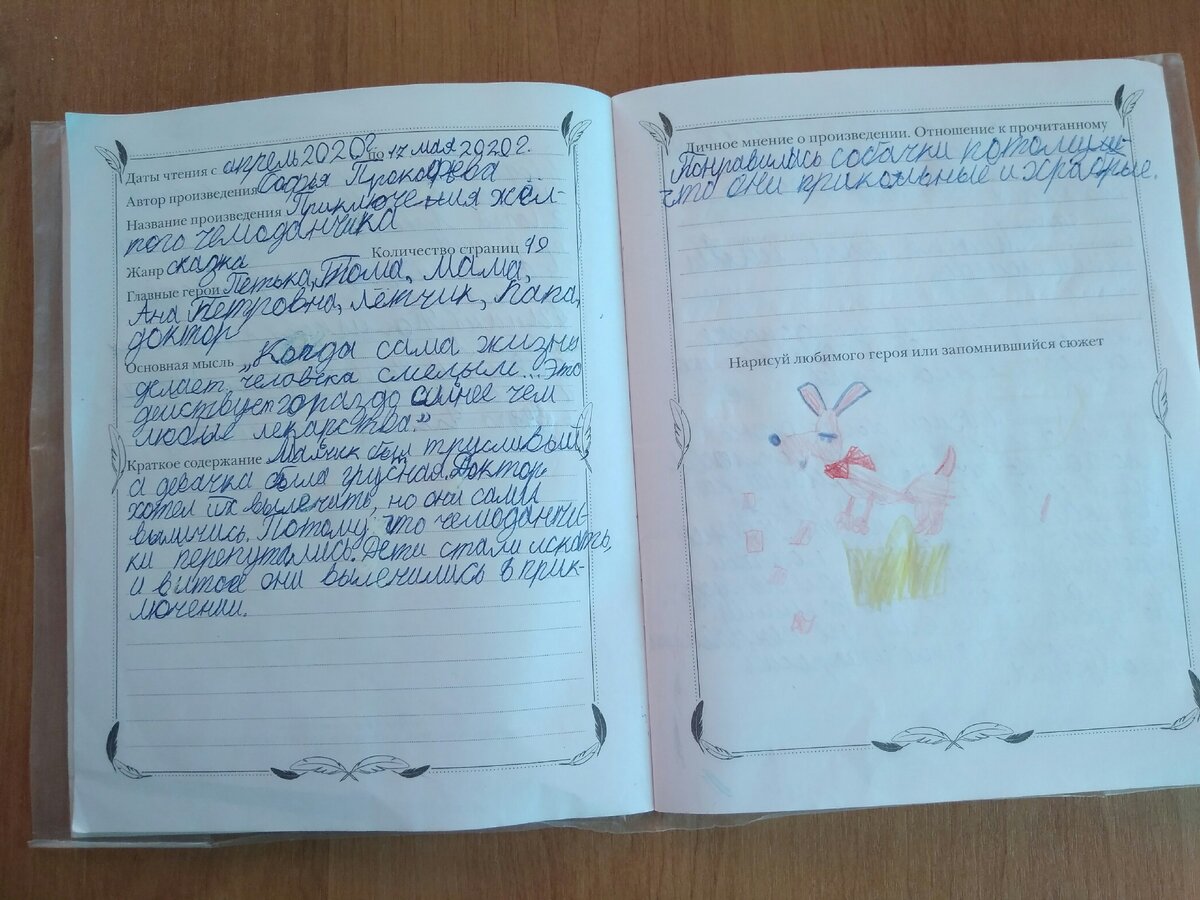 Даты чтения с апрель 2020г по 17 мая 2020г.
Автор произведения Софья Прокофева
Название произведения Приключения жёл-
того чемоданчика
Жанр сказка Количество страниц 19
Главные герои Петька, Тома, Мама,
Ана Петровна, лётчик, папа,
доктор
Основная мысль „Когда сама жизнь
делает человека смелым... Это
действует гораздо силнее чем
любые лекарства."
Краткое содержание Малчик был трусливый,
а девачка была грусная. Доктор
хотел их вылечить, но они сами
выличись. Потому что чемоданчи-
ки перепутались. Дети стали искать,
и в итоге они вылечились в прик-
лючении.
Личное мнение о произведении. Отношение к прочитанному
Понравились собачки потому
что они прикольные и храбрые.
Нарисуй любимого героя или запомнившийся сюжет